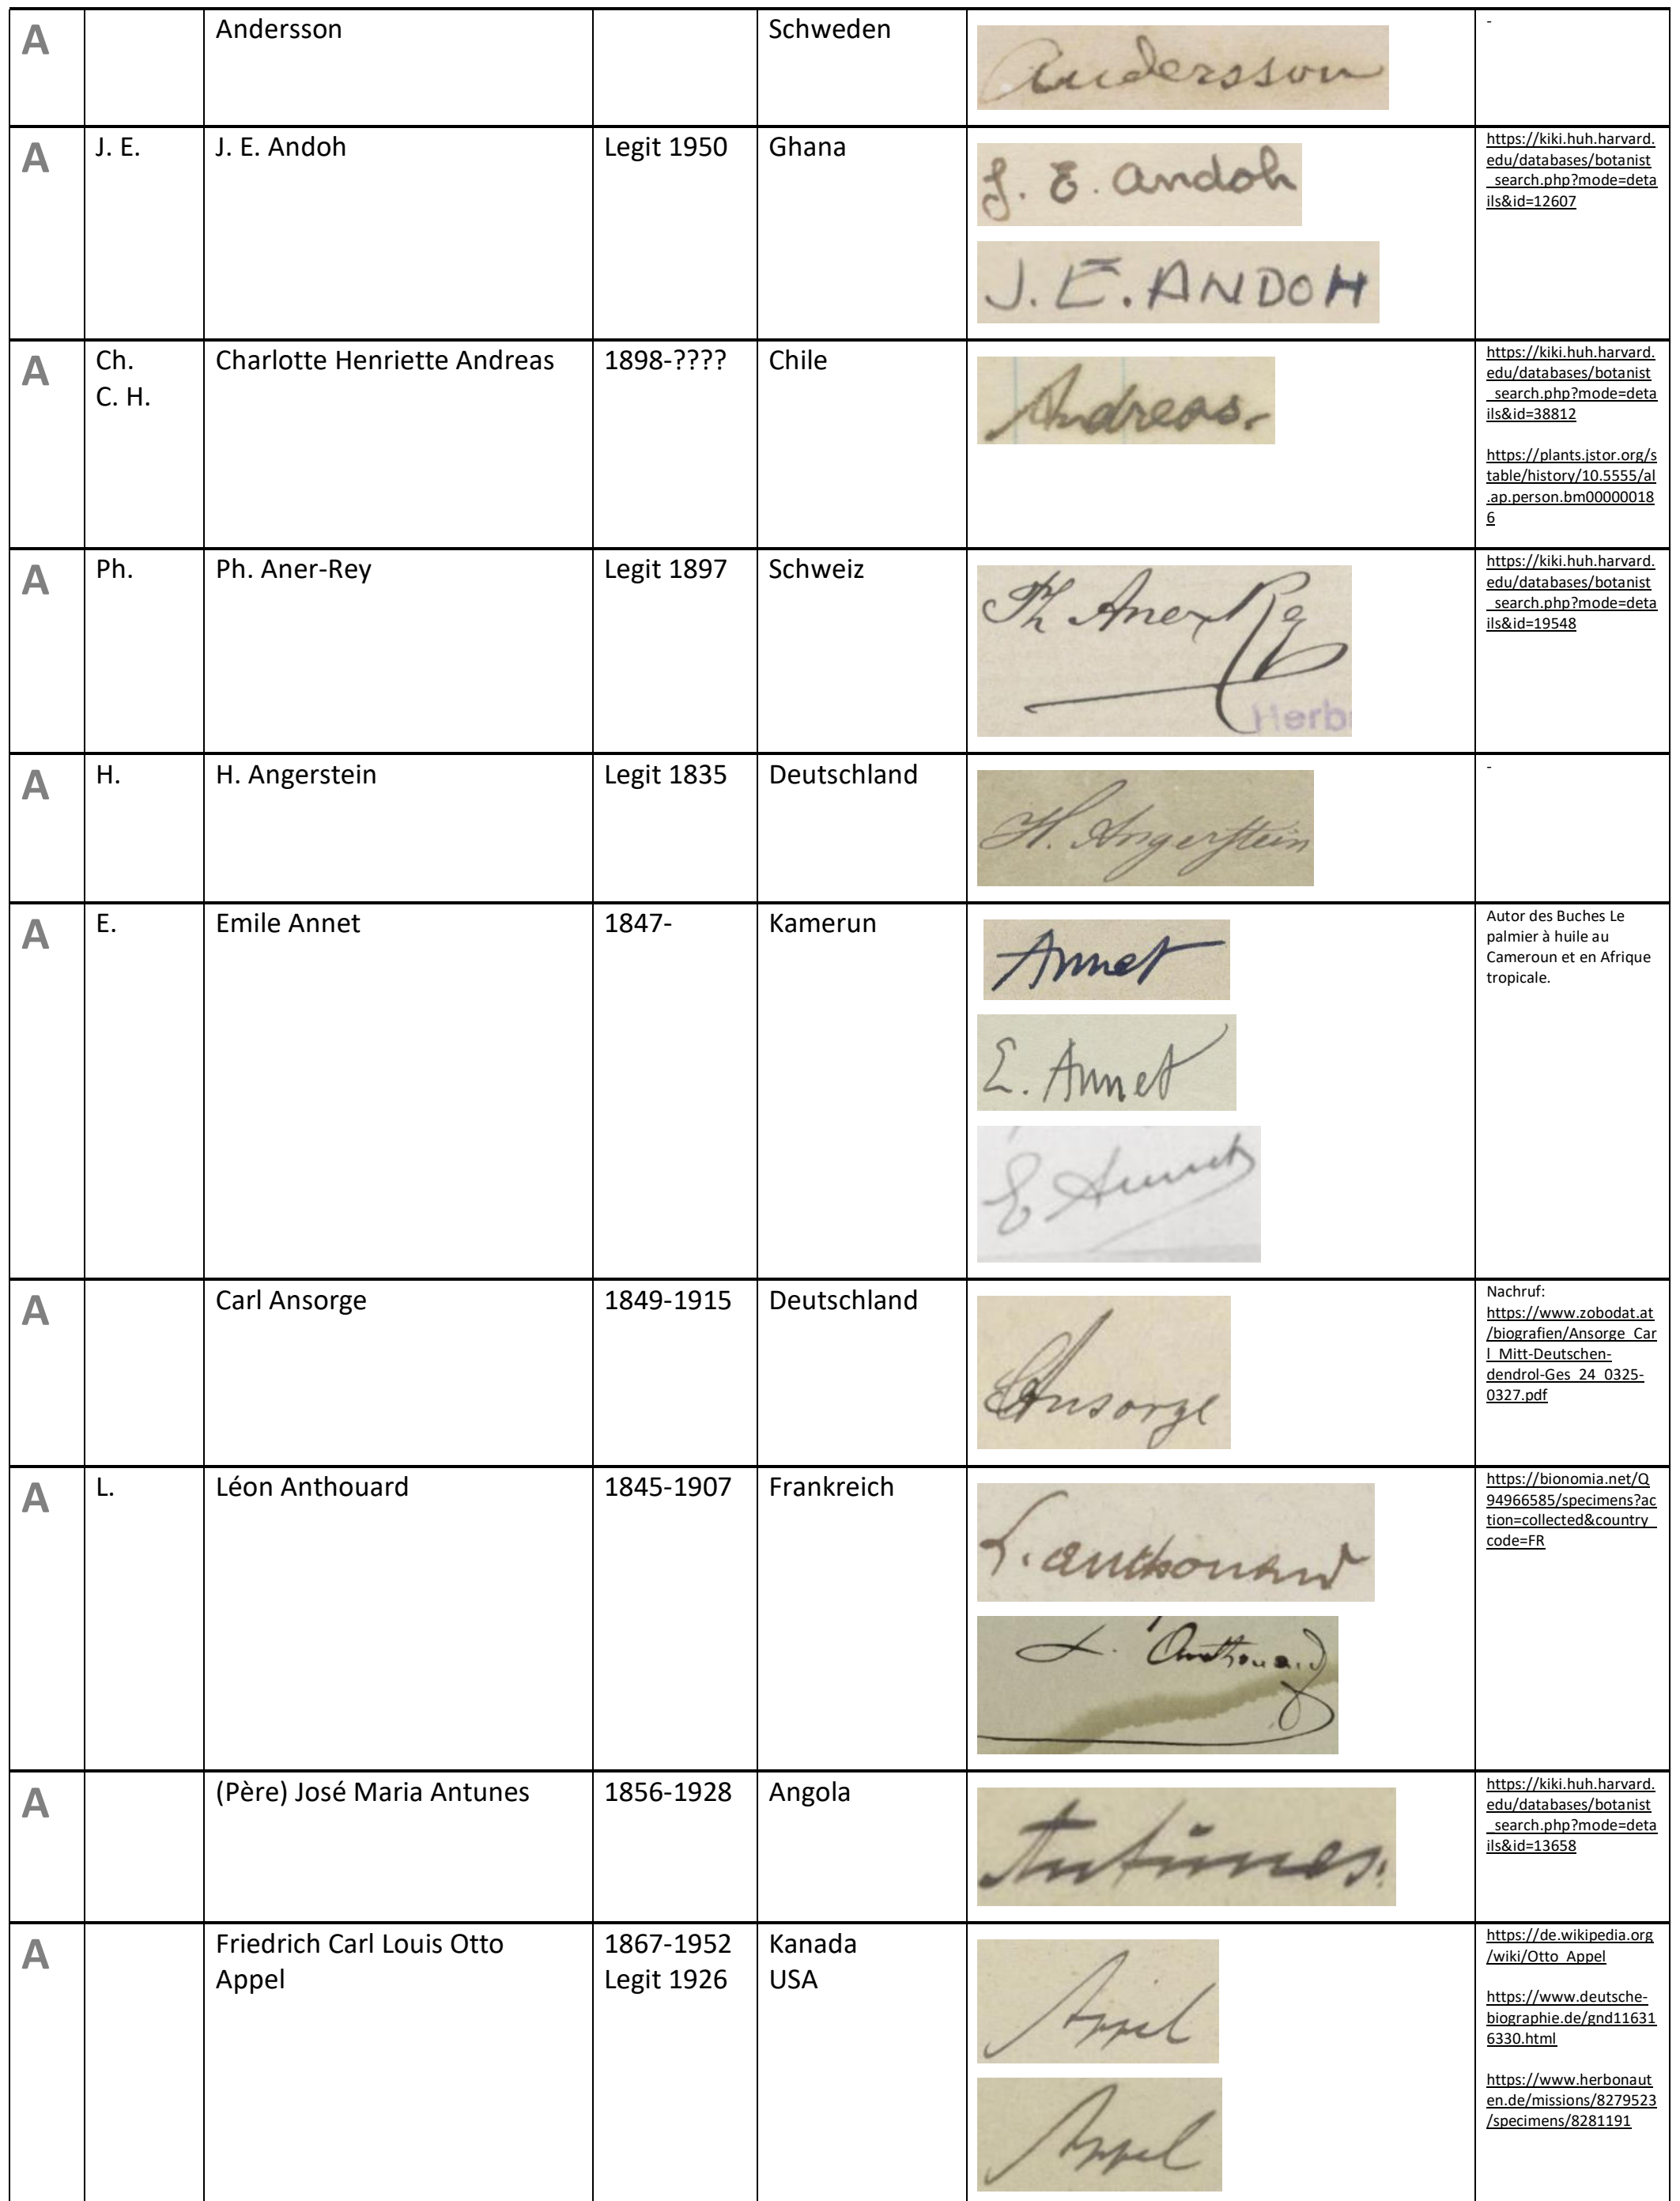 A Andersson Schweden Andersson -
A J. E. J. E. Andoh Legit 1950 Ghana
J. E. Andoh
J. E. ANDOH
https://kiki.huh.harvard.
edu/databases/botanist
_search.php?mode=deta
ils&id=12607
A Ch. Charlotte Henriette Andreas 1898-???? Chile
C. H.
Andreas.
https://kiki.huh.harvard.
edu/databases/botanist
_search.php?mode=deta
ils&id=38812
https://plants.jstor.org/s
table/history/10.5555/al
.ap.person.bm00000018
6
A Ph. Ph. Aner-Rey Legit 1897 Schweiz
Ph Aner-Rey
Herb
https://kiki.huh.harvard.
edu/databases/botanist
_search.php?mode=deta
ils&id=19548
A H. H. Angerstein Legit 1835 Deutschland
H. Angerstein
-
A E. Emile Annet 1847- Kamerun
Annet
E. Annet
E Annet
Autor des Buches Le
palmier à huile au
Cameroun et en Afrique
tropicale.
A Carl Ansorge 1849-1915 Deutschland
CAnsorge
Nachruf:
https://www.zobodat.at
/biografien/Ansorge_Car
l_Mitt-Deutschen-
dendrol-Ges_24_0325-
0327.pdf
A L. Léon Anthouard 1845-1907 Frankreich
L. anthouard
L. Anthouard
https://bionomia.net/Q
94966585/specimens?ac
tion=collected&country_
code=FR
A (Père) José Maria Antunes 1856-1928 Angola
Antunes.
https://kiki.huh.harvard.
edu/databases/botanist
_search.php?mode=deta
ils&id=13658
A Friedrich Carl Louis Otto 1867-1952 Kanada
Appel Legit 1926 USA
Appel
Appel
https://de.wikipedia.org
/wiki/Otto_Appel
https://www.deutsche-
biographie.de/gnd11631
6330.html
https://www.herbonaut
en.de/missions/8279523
/specimens/8281191